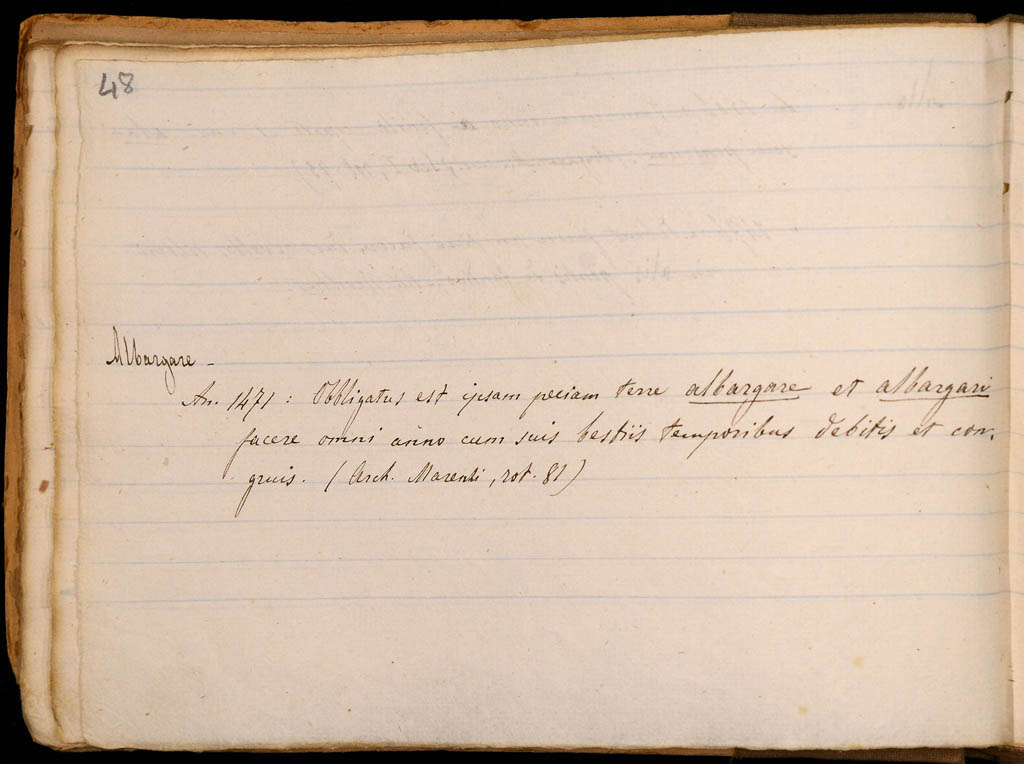 48
Albargare -
An. 1471 : Obbligatus est ipsam peciam terre albargare et albargari
facere omni anno cum suis bestiis temporibus debitis et con-
gruis. (Arch. Marenti, rot. 81)